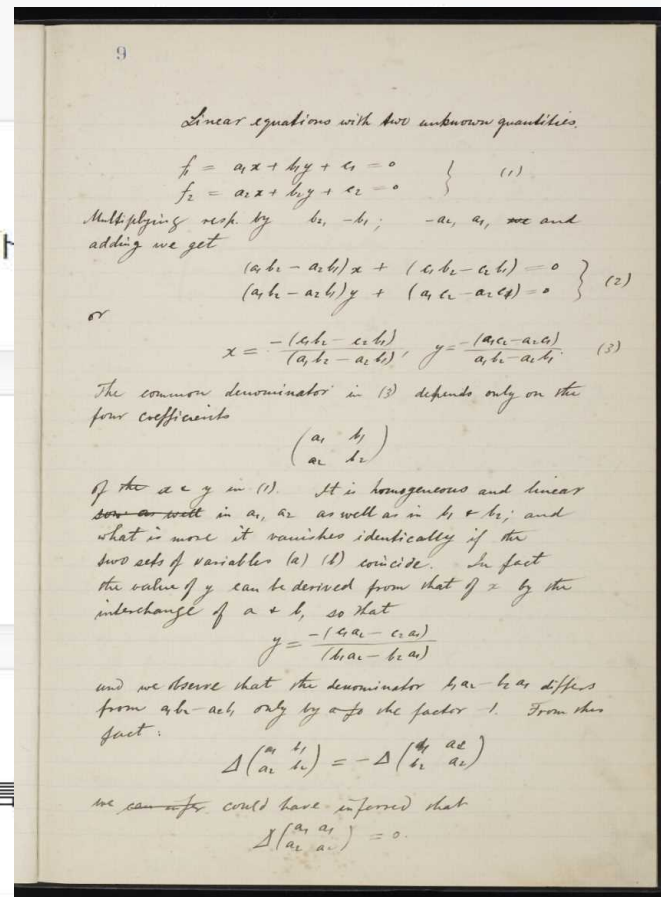 9
Linear equations with two unknown quantities.
f₁ = a₁x + b₁y + c₁ = 0
f₂ = a₂x + b₂y + c₂ = 0 } (1)
Multiplying resp. by b₂, -b₁; -a₂, a₁, and
adding we get
(a₁b₂ - a₂b₁)x + (c₁b₂ - c₂b₁) = 0
(a₁b₂ - a₂b₁)y + (a₁c₂ - a₂c₁) = 0 } (2)
or
x = -(c₁b₂ - c₂b₁)/(a₁b₂ - a₂b₁), y = -(a₁c₂ - a₂c₁)/a₁b₂ - a₂b₁. (3)
The common denominator in (3) depends only on the
four coefficients
(a₁ b₁
a₂ b₂)
of the x & y in (1). It is homogeneous and linear
sow as well in a₁, a₂ as well as in b₁ & b₂; and
what is more it vanishes identically if the
two sets of variables (a) (b) coincide. In fact
the value of y can be derived from that of x by the
interchange of a & b, so that
y = -(c₁a₂ - c₂a₁)/(b₁a₂ - b₂a₁)
and we observe that the denominator b₁a₂ - b₂a₁ differs
from a₁b₂ - a₂b₁ only by the factor -1. From this
fact:
Δ(a₁ b₁
a₂ b₂) = -Δ(b₁ a₂
b₂ a₂)
we can infer could have inferred that
Δ(a₁ a₁
a₂ a₂) = 0.